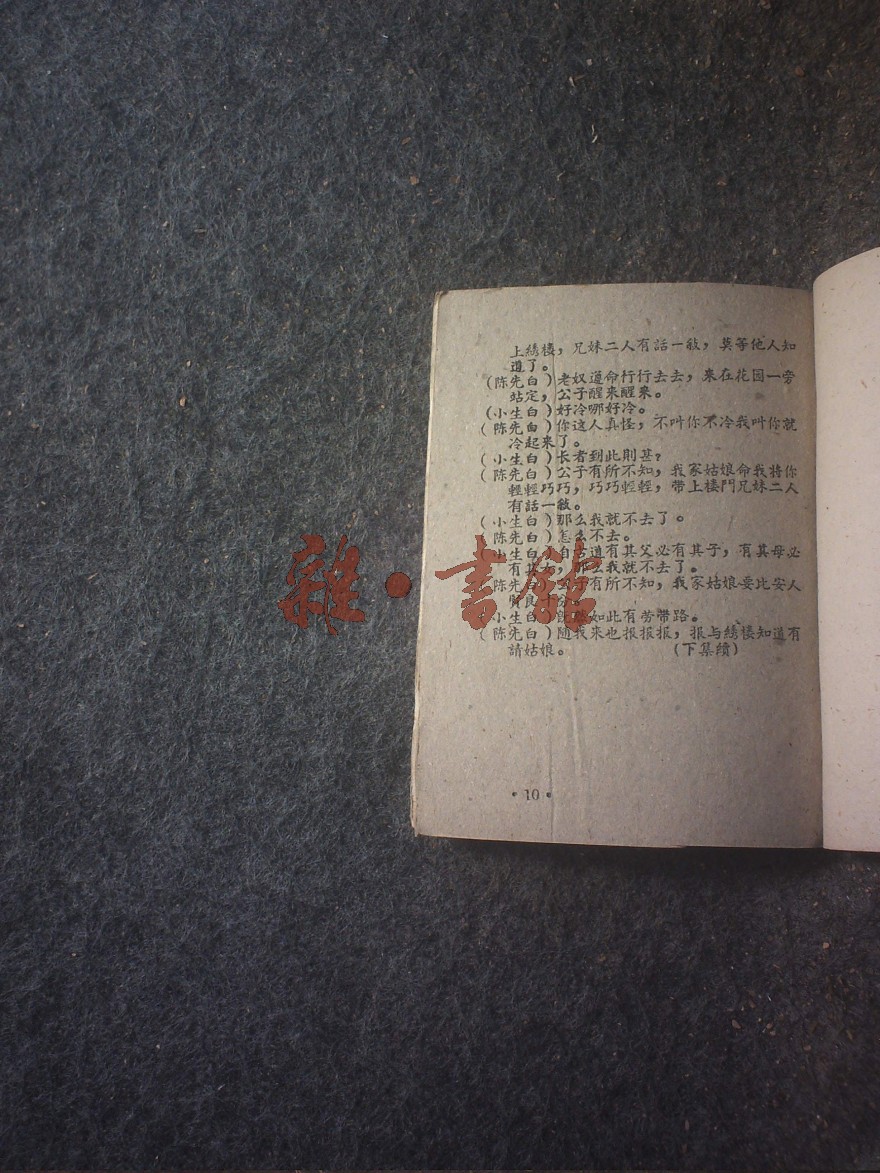 上綉楼，兄妹二人有話一敍，莫等他人知
道了。
(陈先白)老奴遵命行行去去，来在花园一旁
站定，公子醒来醒来。
(小生白)好冷哪好冷。
(陈先白)你这人真怪，不叫你不冷我叫你就
冷起来了。
(小生白)长者到此則甚？
(陈先白)公子有所不知，我家姑娘命我将你
輕輕巧巧，巧巧輕輕，带上楼門兄妹二人
有話一敍。
(小生白)那么我就不去了。
(陈先白)怎么不去。
(小生白)自古道有其父必有其子，有其母必
有其女，那么我就不去了。
(陈先白)公子有所不知，我家姑娘要比安人
賢良十分。
(小生白)既然如此有劳带路。
(陈先白)随我来也报报报，报与綉楼知道有
請姑娘。 (下集續)
·10·
雜·書館